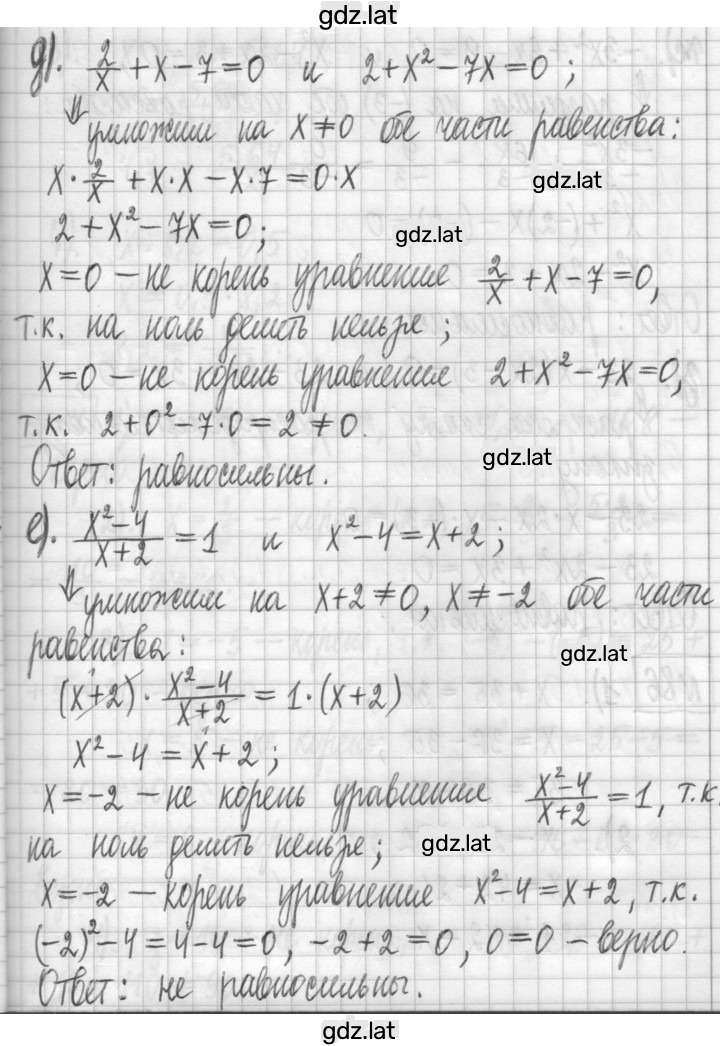 gdz.lat
д). 2/x + x − 7 = 0 и 2 + x² − 7x = 0;
⇓ умножим на x ≠ 0 обе части равенства:
x · 2/x + x · x − x · 7 = 0 · x
gdz.lat
2 + x² − 7x = 0;
gdz.lat
x = 0 – не корень уравнение 2/x + x − 7 = 0,
т.к. на ноль делить нельзя;
x = 0 – не корень уравнение 2 + x² − 7x = 0,
т.к. 2 + 0² − 7 · 0 = 2 ≠ 0.
gdz.lat
Ответ: равносильны.
е). x²−4/x+2 = 1 и x² − 4 = x + 2;
⇓ умножим на x + 2 ≠ 0, x ≠ −2 обе части
равенства:
gdz.lat
(x+2) · x²−4/x+2 = 1 · (x+2)
x² − 4 = x + 2;
x = −2 – не корень уравнения x²−4/x+2 = 1, т.к.
на ноль делить нельзя;
gdz.lat
x = −2 – корень уравнение x² − 4 = x + 2, т.к.
(−2)² − 4 = 4 − 4 = 0, −2 + 2 = 0, 0 = 0 – верно.
Ответ: не равносильны.
gdz.lat